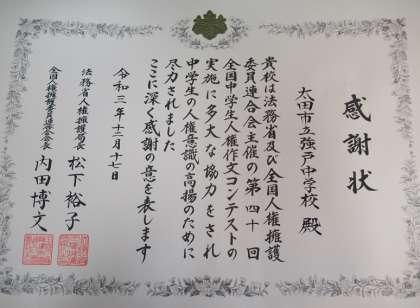 感謝状
太田市立強戸中学校 殿
貴校は法務省及び全国人権擁護
委員連合会主催の第四十回
全国中学生人権作文コンテストの
実施に多大な協力をされ
中学生の人権意識の高揚のために
尽力されました
ここに深く感謝の意を表します
令和三年十二月十七日
法務省人権擁護局長 松下裕子
全国人権擁護委員連合会会長 内田博文